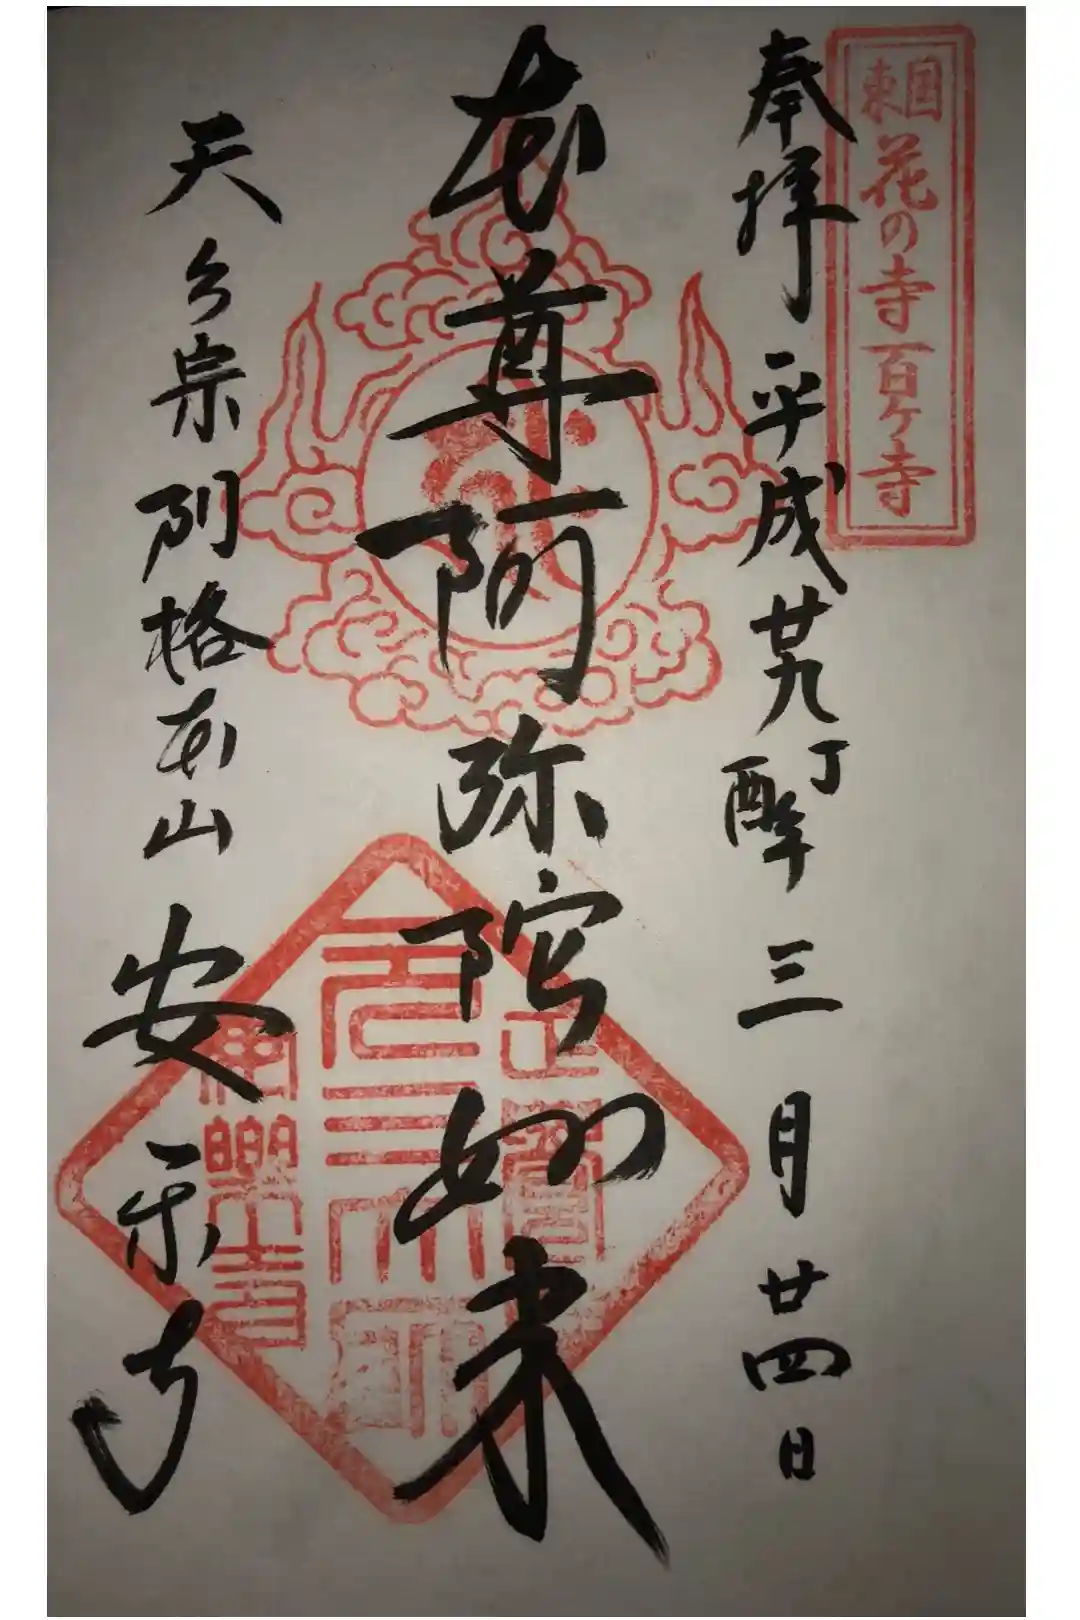 東国花の寺百ヶ寺
奉拝 平成廿九丁酉年 三月廿四日
本尊阿弥陀如来
天台宗 別格本山 安楽寺
元三大師
安楽寺